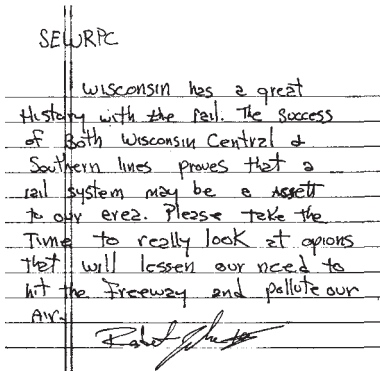 SEWRPC
Wisconsin has a great
History with the rail. The success
of Both Wisconsin Central &
Southern lines proves that a
rail system may be a Assett
to our erea. Please take the
Time to really look at opions
that will lessen our need to
hit the Freeway and pollute our
Air.